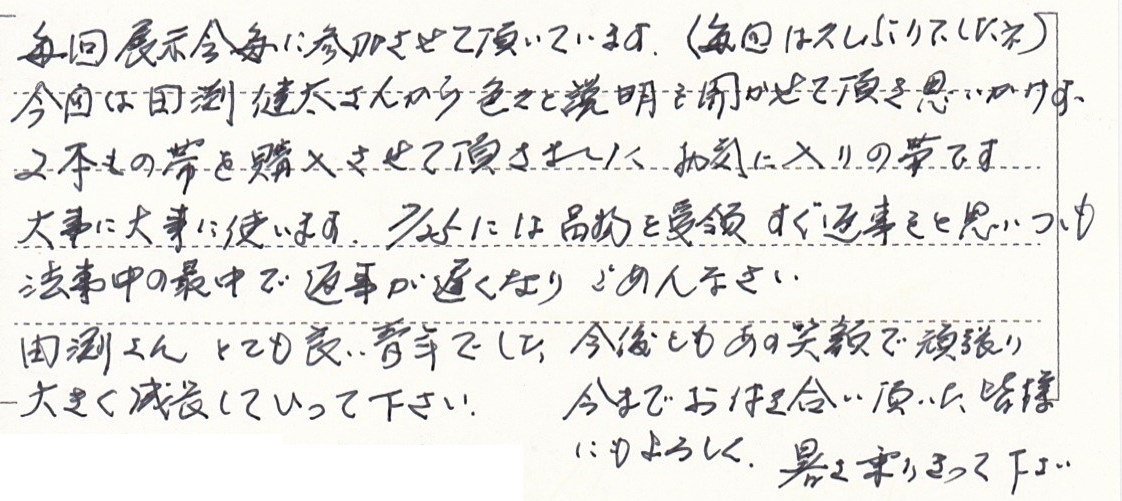 毎回展示会毎に参加させて頂いています。(毎回は久しぶりでしたネ)
今回は田渕健太さんから色々と説明を聞かせて頂き思いがけず、
2本もの帯を購入させて頂きました お気に入りの帯です
大事に大事に使います。7/25には品物を受領 すぐ返事をと思いつつも
法事中の最中で返事が遅くなり ごめんなさい
田渕さん とても良い青年でした 今後ともあの笑顔で頑張り
大きく成長していって下さい。 今までお付き合い頂いた皆様
にもよろしく。 暑さ乗りきって下さい